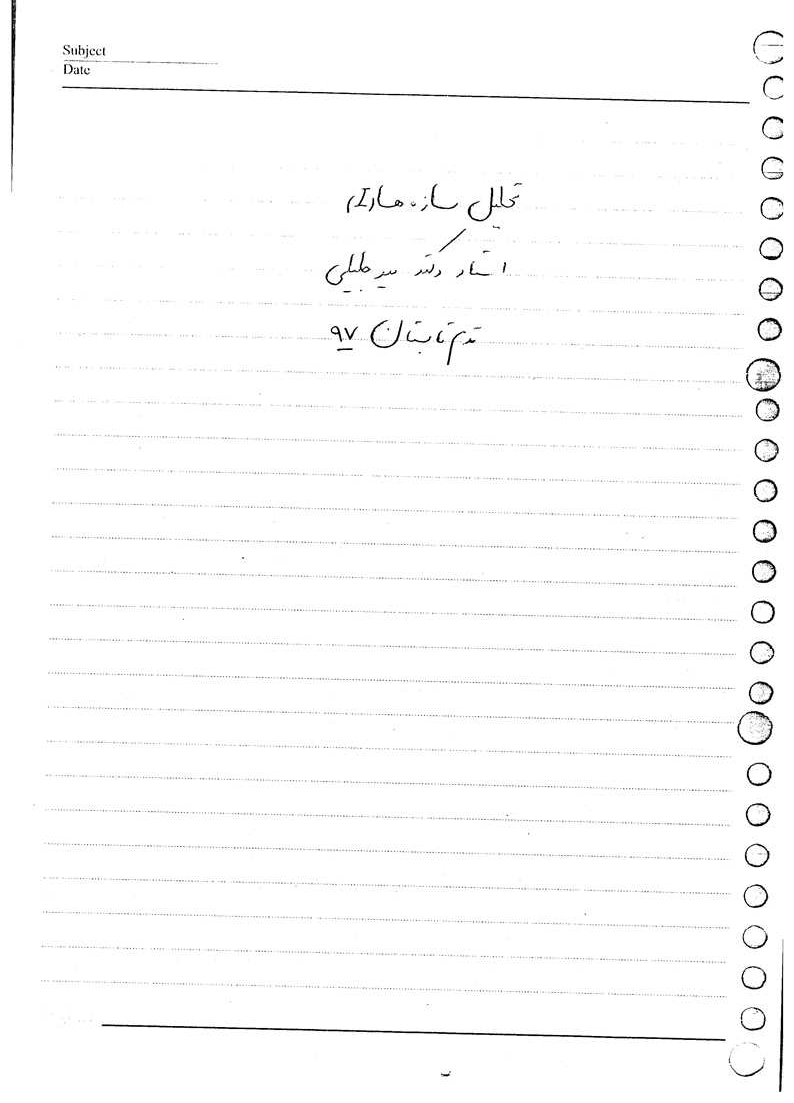 Subject
Date
تحلیل سازه های I
استاد دکتر میرجلیلی
ترم تابستان ۹۷